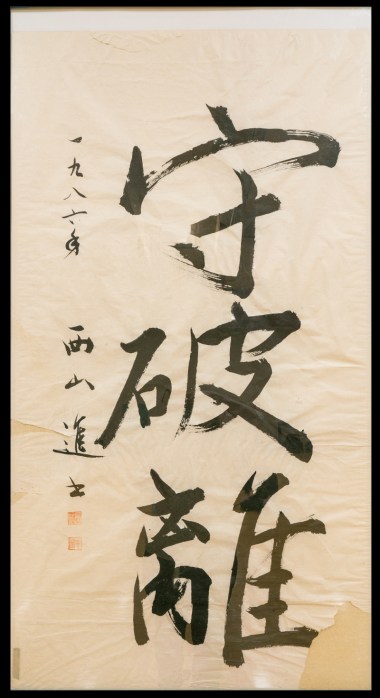 守破離
一九八六年 西山進書